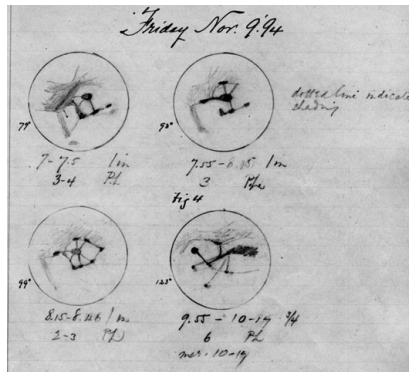 Friday Nov. 9. '94
dotted line indicate
shading
79°
93°
7 - 7.5 1 in
3-4 PL
7.55 - 8.15 1 in
3 PL
Fig 4
99°
123°
8.15 - 8.46 1 in
2-3 PL
9.55 - 10-19 3/4
6 PL
mer. 10-19